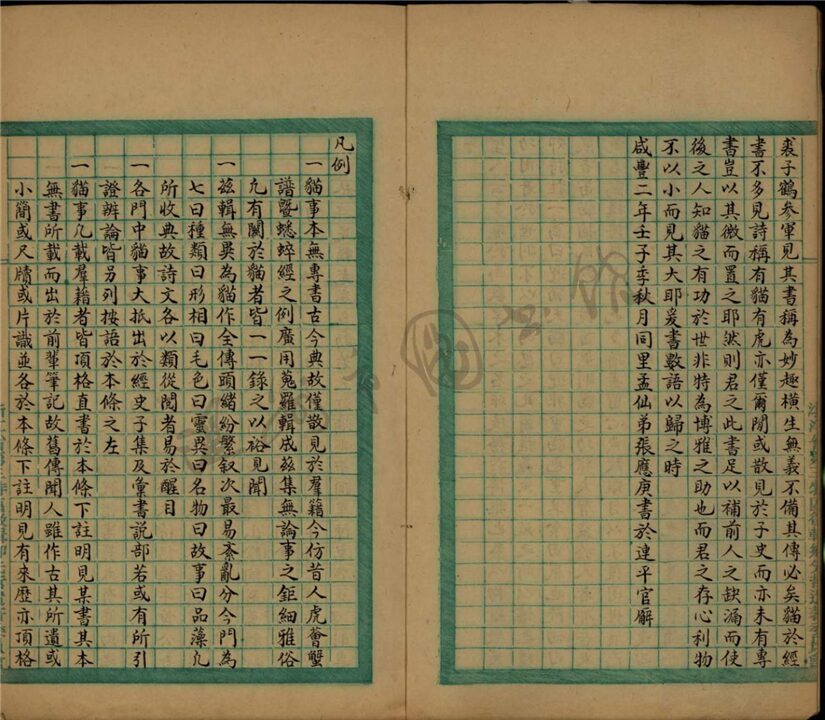 裘子鶴參軍見其書稱為妙趣橫生無義不備其傳必矣貓於經
書不多見詩稱有貓有虎亦僅爾閒或散見於子史而亦未有專
書豈以其微而置之耶然則君之此書足以補前人之缺漏而使
後之人知貓之有功於世非特為博雅之助也而君之存心利物
不以小而見其大耶爰書數語以歸之時
咸豐二年壬子季秋月同里孟仙弟張應庚書於連平官廨
凡例
一貓事本無專書古今典故僅散見於羣籍今仿昔人虎薈蟹
譜暨蟋蟀經之例廣用蒐羅輯成茲集無論事之鉅細雅俗
凡有關於貓者皆一一錄之以裕見聞
一茲輯無異為貓作全傳頭緒紛繁叙次最易紊亂分今門為
七曰種類曰形相曰毛色曰靈異曰名物曰故事曰品藻凡
所收典故詩文各以類從閱者易於醒目
一各門中貓事大抵出於經史子集及彙書說部若或有所引
證辨論皆另列按語於本條之左
一貓事凡載羣籍者皆頂格直書於本條下註明見某書其本
無書所載而出於前輩筆記故舊傳聞人雖作古其所遺或
小簡或尺牘或片識並各於本條下註明見有來歷亦頂格